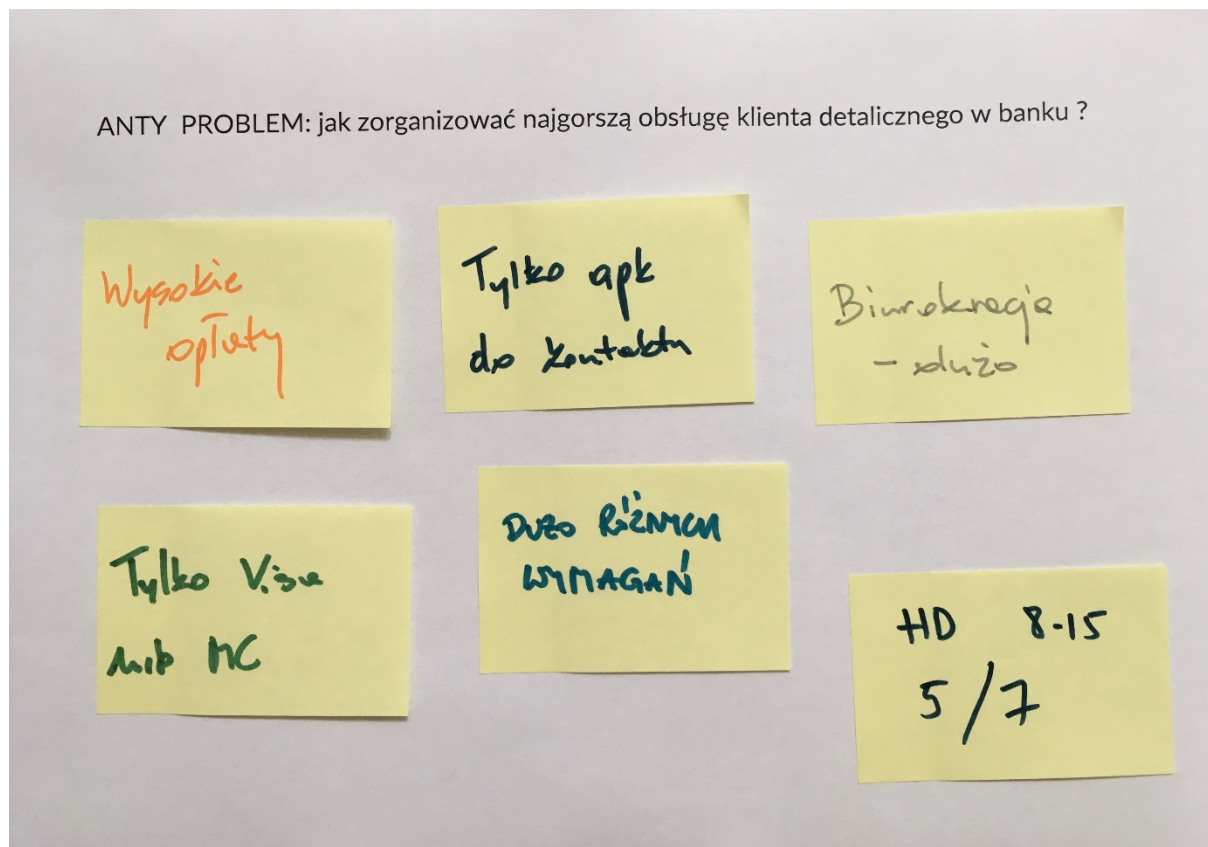 ANTY PROBLEM: jak zorganizować najgorszą obsługę klienta detalicznego w banku ?
Wysokie
opłaty
Tylko apk
do kontaktu
Biurokracja
- dużo
Tylko Visa
lub MC
DUŻO RÓŻNYCH
WYMAGAŃ
HD 8-15
5/7